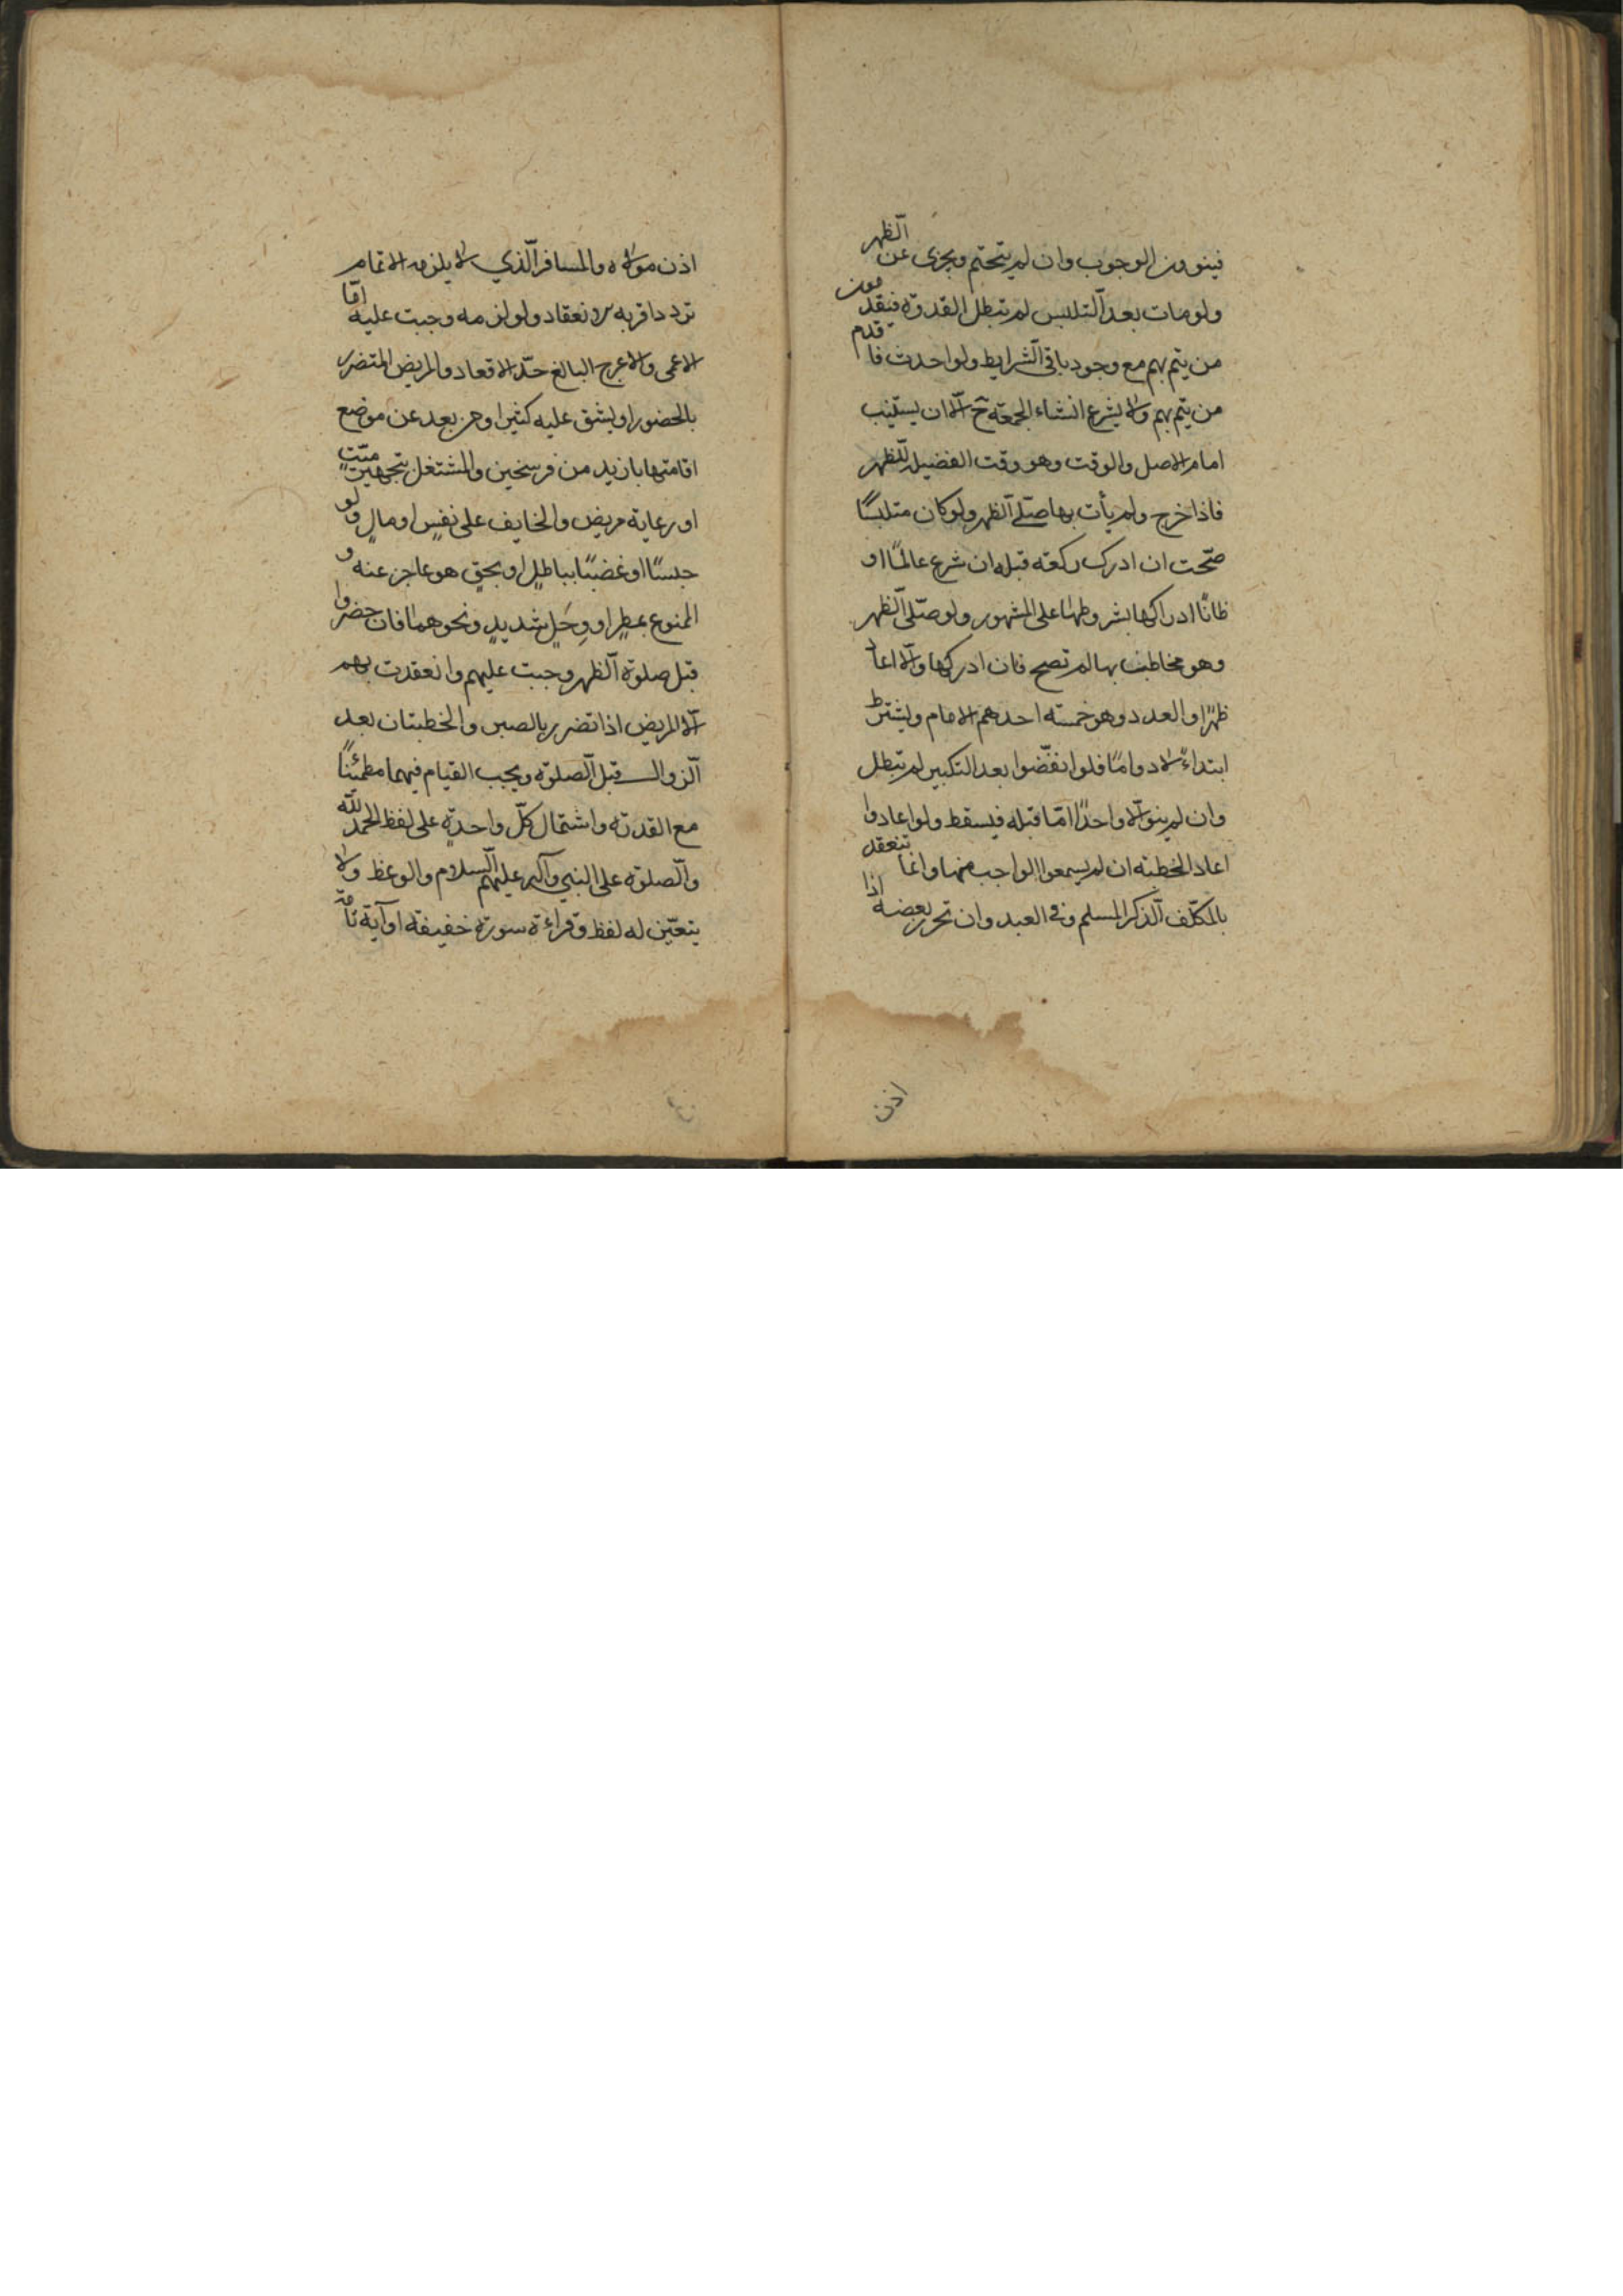 فينوون الوجوب وان لم يتحتم ويجزى عن الظهر
ولو مات بعد التلبس لم تبطل القدوة فيقدمون
من يتم بهم مع وجود باقى الشرايط ولو احدث قدم
من يتم بهم ولا يشرع انشاء الجمعة ح الا ان يستنيب
امام الاصل والوقت وهو وقت الفضيلة للظهر
فاذا خرج ولم يأت بها صلى الظهر ولو كان متلبسًا
صحت ان ادرك ركعة قبله ان شرع عالمًا او
ظانًا ادراكها بشروطها على المشهور ولو صلى الظهر
وهو مخاطب بها لم تصح فان ادركها والا اعاد
ظهرًا والعدد وهو خمسة احدهم الامام ويشترط
ابتداءً لا دوامًا فلو انفضوا بعد التكبير لم تبطل
وان لم يبق الا واحدًا امّا قبله فيسقط ولو اعادوا
اعاد الخطبة ان لم يسمعوا الواجب منها وانما تنعقد
بالمكلف الذكر المسلم وفى العبد وان تحرر بعضه اذا
اذن
اذن مولاه والمسافر الذي لا يلزمه الاتمام
تردد اقربه الانعقاد ولو لزمه وجبت عليه امّا
الاعمى والاعرج البالغ حدّ الاقعاد والمريض المتضرر
بالحضور او يشق عليه كثيرا ومن بعد عن موضع
اقامتها بازيد من فرسخين والمشتغل بتجهيز ميّتٍ
او رعاية مريض والخايف على نفسٍ او مالٍ ولو
حبسًا او غضبًا بباطلٍ او بحقٍ هو عاجز عنه و
الممنوع بمطرٍ او وحَلٍ شديدٍ ونحوهما فان حضروا
قبل صلوة الظهر وجبت عليهم وانعقدت بهم
الا المريض اذا تضرر بالصبر والخطبتان بعد
الزوال قبل الصلوة ويجب القيام فيهما مطمئنًا
مع القدرة واشتمال كلّ واحدةٍ على لفظ الحمد لله
والصلوة على النبي وآله عليهم السلام والوعظ ولا
يتعيّن له لفظ وقراءة سورة خفيفة او آية تامّة